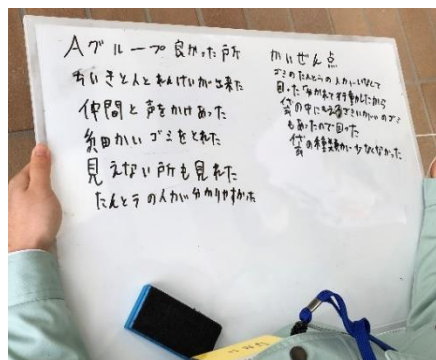 Aグループ良かった所
ちいきと人とれんけいが出来た
仲間と声をかけあった
細かいゴミをとれた
見えない所も見れた
たんとうの人がい分かりやすかった
かいぜん点
ゴミのたんとうの人がいなくて
困った分かれて行動したから
袋の中にもう
のゴミ
もあったので困った
袋の種類が少なくなかった